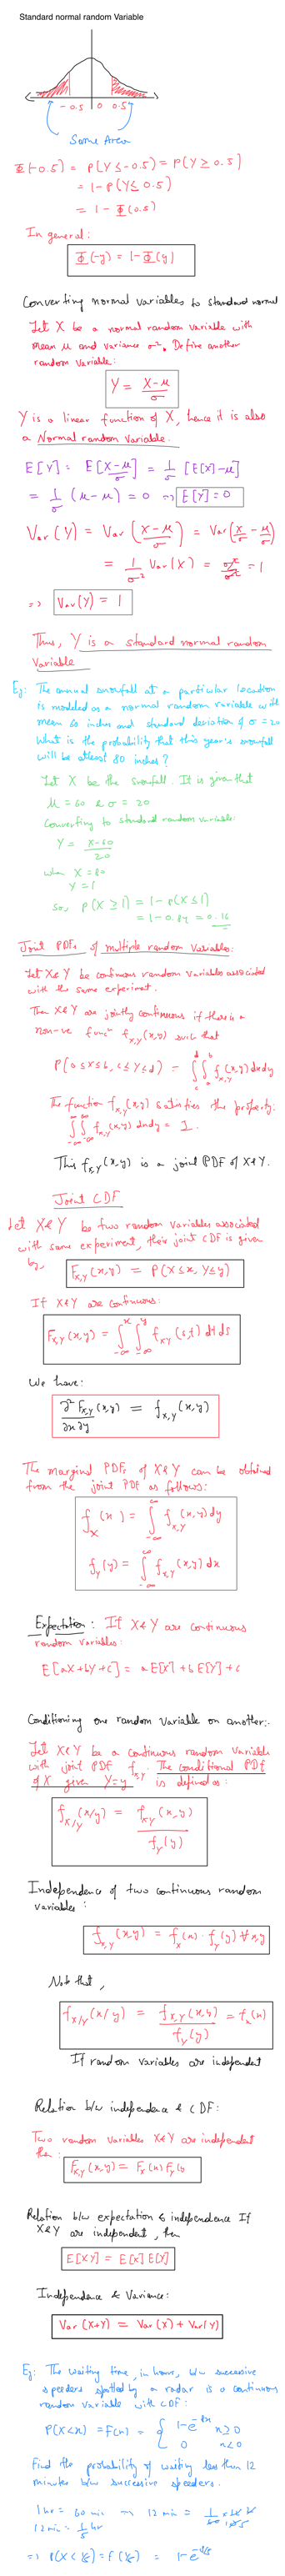 Standard normal random Variable
-0.5 0 0.5
Same Area
Φ(-0.5) = P(Y ≤ -0.5) = P(Y ≥ 0.5)
= 1 - P(Y ≤ 0.5)
= 1 - Φ(0.5)
In general:
Φ(-y) = 1 - Φ(y)
Converting normal variables to standard normal
Let X be a normal random variable with
mean μ and variance σ². Define another
random variable:
Y = X-μ / σ
Y is a linear function of X, hence it is also
a Normal random variable.
E[Y] = E[X-μ / σ] = 1/σ [E[X]-μ]
= 1/σ (μ-μ) = 0 ⇒ E[Y] = 0
Var(Y) = Var(X-μ / σ) = Var(X/σ - μ/σ)
= 1/σ² Var(X) = σ²/σ² = 1
=> Var(Y) = 1
Thus, Y is a standard normal random
Variable
Eg: The annual snowfall at a particular location
is modeled as a normal random variable with
mean 60 inches and standard deviation of σ = 20
What is the probability that this year's snowfall
will be atleast 80 inches?
Let X be the snowfall. It is given that
μ = 60 & σ = 20
Converting to standard random variable:
Y = X-60 / 20
when X = 80
Y = 1
So, P(X ≥ 1) = 1 - P(X ≤ 1)
= 1 - 0.84 = 0.16
Joint PDFs of multiple random Variables:
Let X & Y be continuous random variables associated
with the same experiment.
Then X & Y are jointly continuous if there is a
non-ve funcⁿ f_{X,Y}(x,y) such that
P(a≤X≤b, c≤Y≤d) = ∫_c^d ∫_a^b f_{X,Y}(x,y) dx dy
The function f_{X,Y}(x,y) satisfies the property:
∫_{-∞}^{∞} ∫_{-∞}^{∞} f_{X,Y}(x,y) dx dy = 1.
This f_{X,Y}(x,y) is a joint PDF of X & Y.
Joint CDF
Let X & Y be two random variables associated
with same experiment, their joint CDF is given
by, F_{X,Y}(x,y) = P(X≤x, Y≤y)
If X & Y are continuous:
F_{X,Y}(x,y) = ∫_{-∞}^x ∫_{-∞}^y f_{XY}(s,t) dt ds
We have:
∂²F_{X,Y}(x,y) / ∂x∂y = f_{X,Y}(x,y)
The marginal PDFs of X & Y can be obtained
from the joint PDF as follows:
f_X(x) = ∫_{-∞}^{∞} f_{X,Y}(x,y) dy
f_Y(y) = ∫_{-∞}^{∞} f_{X,Y}(x,y) dx
Expectation: If X & Y are continuous
random variables:
E[aX+bY+c] = a E[X] + b E[Y] + c
Conditioning one random Variable on another:
Let X & Y be a continuous random variable
with joint PDF f_{X,Y}. The conditional PDF
of X given Y=y is defined as:
f_{X/Y}(x/y) = f_{X,Y}(x,y) / f_Y(y)
Independence of two continuous random
variables:
f_{X,Y}(x,y) = f_X(x) · f_Y(y) ∀ x,y
Note that,
f_{X/Y}(x/y) = f_{X,Y}(x,y) / f_Y(y) = f_X(x)
If random variables are independent
Relation b/w independence & CDF:
Two random variables X & Y are independent
then:
F_{X,Y}(x,y) = F_X(x) F_Y(y
Relation b/w expectation & independence If
X & Y are independent, then
E[XY] = E[X] E[Y]
Independence & Variance:
Var(X+Y) = Var(X) + Var(Y)
Eg: The waiting time, in hours, b/w successive
speeders spotted by a radar is a continuous
random variable with CDF:
P(X<x) = F(x) = { 1-e^{-8x} x≥0
0 x<0
Find the probability of waiting less than 12
minutes b/w successive speeders.
1 hr = 60 min
12 min = 1/5 hr
=> P(X < 1/5) = F(1/5) = 1-e^{-8/5}